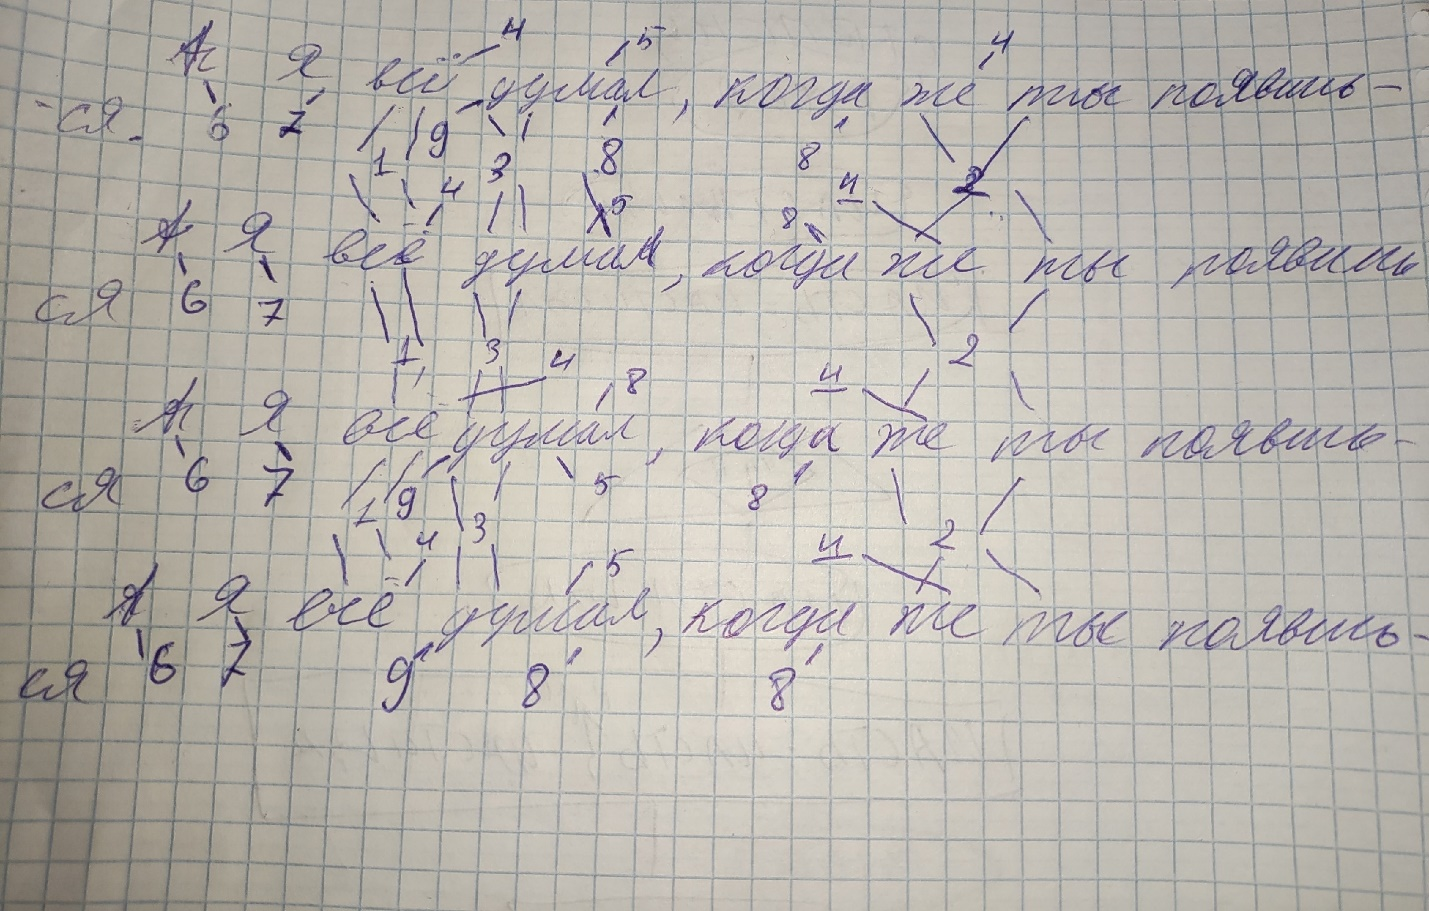 4 5 4
А Я всё думал, когда же ты появишь-
-ся. 6 7 9
1 3 8 8 4 2
4 5 8
А Я всё думал, когда же ты появишь
ся 6 7
1 3 2
4 8 4
А Я всё думал, когда же ты появишь-
ся 6 7 1 9 5 8
4 3 5 4 2
А Я всё думал, когда же ты появишь-
ся 6 7 9 8 8